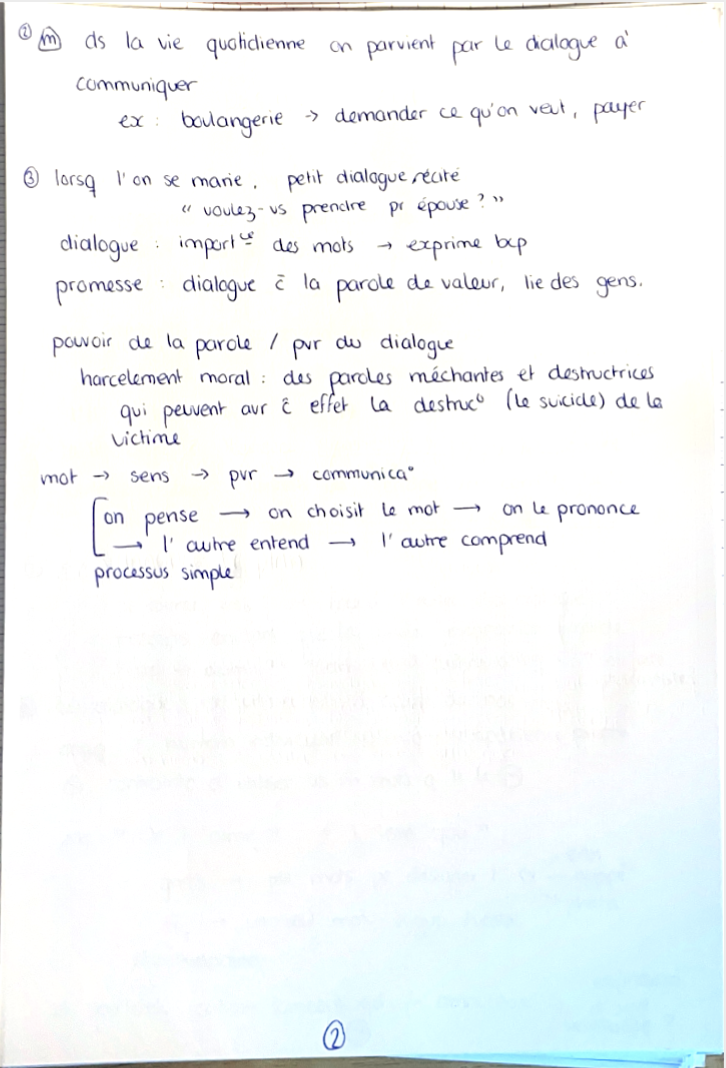 ② (m) ds la vie quotidienne on parvient par le dialogue à
communiquer
ex : boulangerie → demander ce qu'on veut, payer
③ lorsq l'on se marie, petit dialogue récité
" voulez-vs prendre pr épouse ? "
dialogue : import^ce des mots → exprime bcp
promesse : dialogue c̄ la parole de valeur, lie des gens.
pouvoir de la parole / pvr du dialogue
harcelement moral : des paroles méchantes et destructrices
qui peuvent avr c̄ effet la destruc° (le suicide) de la
victime
mot → sens → pvr → communica°
[on pense → on choisit le mot → on le prononce
→ l'autre entend → l'autre comprend
processus simple
②